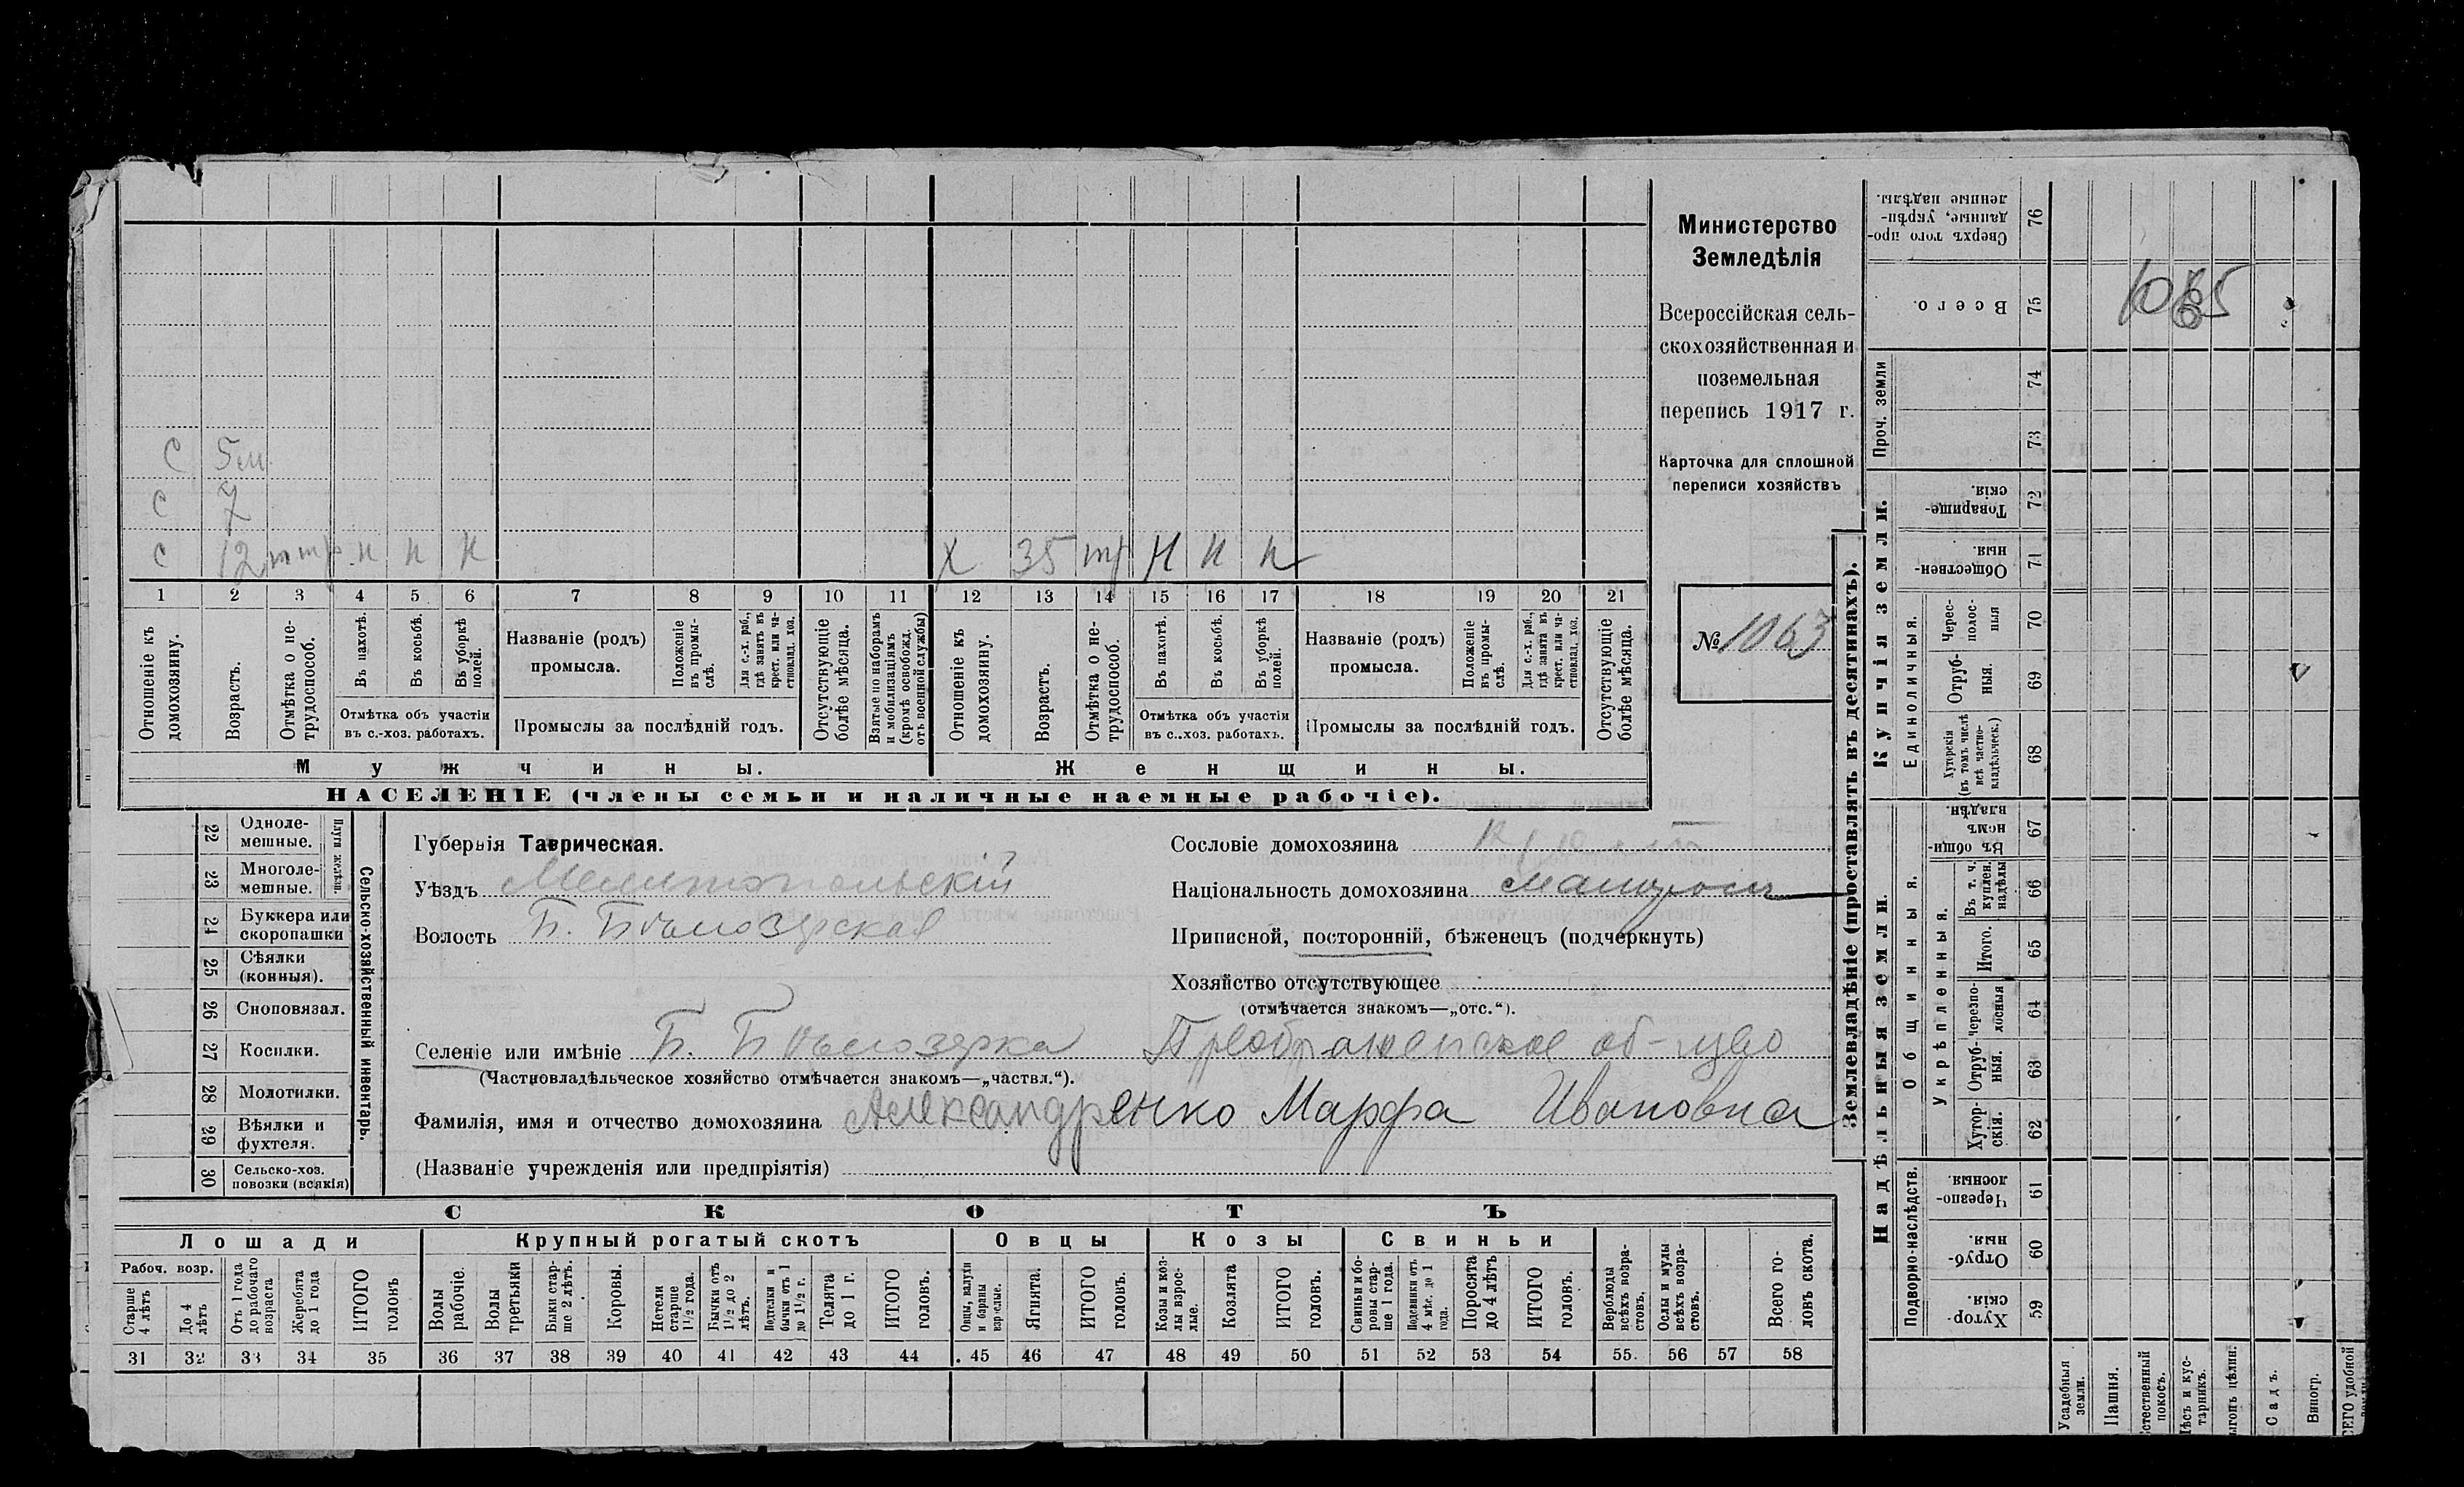 С 5 м.
С 7
С 12 н н н Х 35 Н н н
1 2 3 4 5 6 7 8 9 10 11 12 13 14 15 16 17 18 19 20 21
Отношеніе къ домохозяину.
Возрастъ.
Отмѣтка о нетрудоспособ.
Въ пахотѣ.
Въ косьбѣ.
Въ уборкѣ полей.
Отмѣтка объ участіи въ с.-хоз. работахъ.
Названіе (родъ) промысла.
Положеніе въ промыслѣ.
Для с.-х. раб., гдѣ занятъ въ крест. или ча-
Промыслы за послѣдній годъ.
Отсутствующіе болѣе мѣсяца.
Взятые по наборамъ и мобилизаціямъ (кромѣ освобожд. отъ военной службы)
Отношеніе къ домохозяину.
Возрастъ.
Отмѣтка о нетрудоспособ.
Въ пахотѣ.
Въ косьбѣ.
Въ уборкѣ полей.
Отмѣтка объ участіи въ с.-хоз. работахъ.
Названіе (родъ) промысла.
Положеніе въ промыслѣ.
Для с.-х. раб., гдѣ занята въ крест. или ча-
Промыслы за послѣдній годъ.
Отсутствующіе болѣе мѣсяца.
Мужчины.
Женщины.
НАСЕЛЕНІЕ (члены семьи и наличные наемные рабочіе).
Министерство
Земледѣлія
Всероссійская сель-
скохозяйственная и
поземельная
перепись 1917 г.
Карточка для сплошной
переписи хозяйствъ
№ 1063
22 Одноле-
мешные.
23 Многоле-
мешные.
Плуги желѣзн.
24 Буккера или
скоропашки
25 Сѣялки
(конныя).
26 Сноповязал.
27 Косилки.
28 Молотилки.
29 Вѣялки и
фухтеля.
30 Сельско-хоз.
повозки (всякія)
Сельско-хозяйственный инвентарь.
Губернія Таврическая.
Уѣздъ Мелитопольскій
Волость Б. Бѣлозерская
Сословіе домохозяина
Національность домохозяина малоросы
Приписной, посторонній, бѣженецъ (подчеркнуть)
Хозяйство отсутствующее
(отмѣчается знакомъ—„отс.“).
Селеніе или имѣніе Б. Бѣлозерка Преображенское об-щво
(Частновладѣльческое хозяйство отмѣчается знакомъ—„частвл.“).
Фамилія, имя и отчество домохозяина Александренко Марфа Ивановна
(Названіе учрежденія или предпріятія)
СКОТЪ
Лошади
Крупный рогатый скотъ
Овцы
Козы
Свиньи
Рабоч. возр.
Старше 4 лѣтъ
До 4 лѣтъ
Отъ 1 года до рабочаго возраста
Жеребята до 1 года
ИТОГО головъ
Волы рабочіе.
Волы третьяки
Быки старше 2 лѣтъ.
Коровы.
Нетели старше 1½ года.
Бычки отъ 1½ до 2 лѣтъ.
Подтелки и бычки отъ 1 до 1½ г.
Телята до 1 г.
ИТОГО головъ.
Овцы, валухи и бараны взрослые.
Ягнята.
ИТОГО головъ.
Козы и козлы взрослые.
Козлята
ИТОГО головъ.
Свиньи и боровы старше 1 года.
Подсвинки отъ 4 мѣс. до 1 года.
Поросята до 4 лѣтъ
ИТОГО головъ.
Верблюды всѣхъ возрастовъ.
Ослы и мулы всѣхъ возрастовъ.
Всего головъ скота.
31 32 33 34 35 36 37 38 39 40 41 42 43 44 45 46 47 48 49 50 51 52 53 54 55 56 57 58
Землевладѣніе (проставлять въ десятинахъ).
Надѣльныя земли.
Купчія земли.
Проч. земли
Подворно-наслѣдств.
Общинныя.
Укрѣпленныя.
Единоличныя.
Сверхъ того проданные, укрѣпленные надѣлы. 76
Всего. 75
74
73
Товарищескія. 72
Общественныя. 71
Чересполосныя 70
Отрубныя. 69
Хуторскія (въ томъ числѣ всѣ частновладѣльческ.) 68
Въ общинномъ владѣн. 67
Въ т. ч. куплен. надѣлы 66
Итого. 65
Черезполосныя 64
Отрубныя. 63
Хуторскія. 62
Черезполосныя. 61
Отрубныя. 60
Хуторскія. 59
Усадебныя земли.
Пашня.
Садъ.
Виногр.